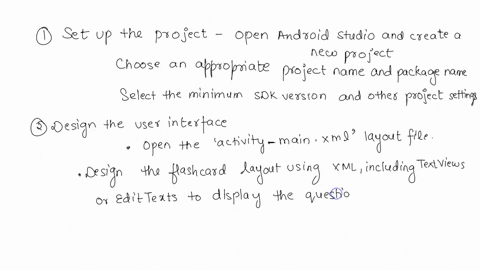 ① Set up the project - open Android studio and create a
new project
Choose an appropriate project name and package name
Select the minimum SDK version and other project settings
② Design the user interface
• Open the 'activity-main.xml' layout file.
• Design the flashcard layout using XML, including TextViews
or EditTexts to display the questio